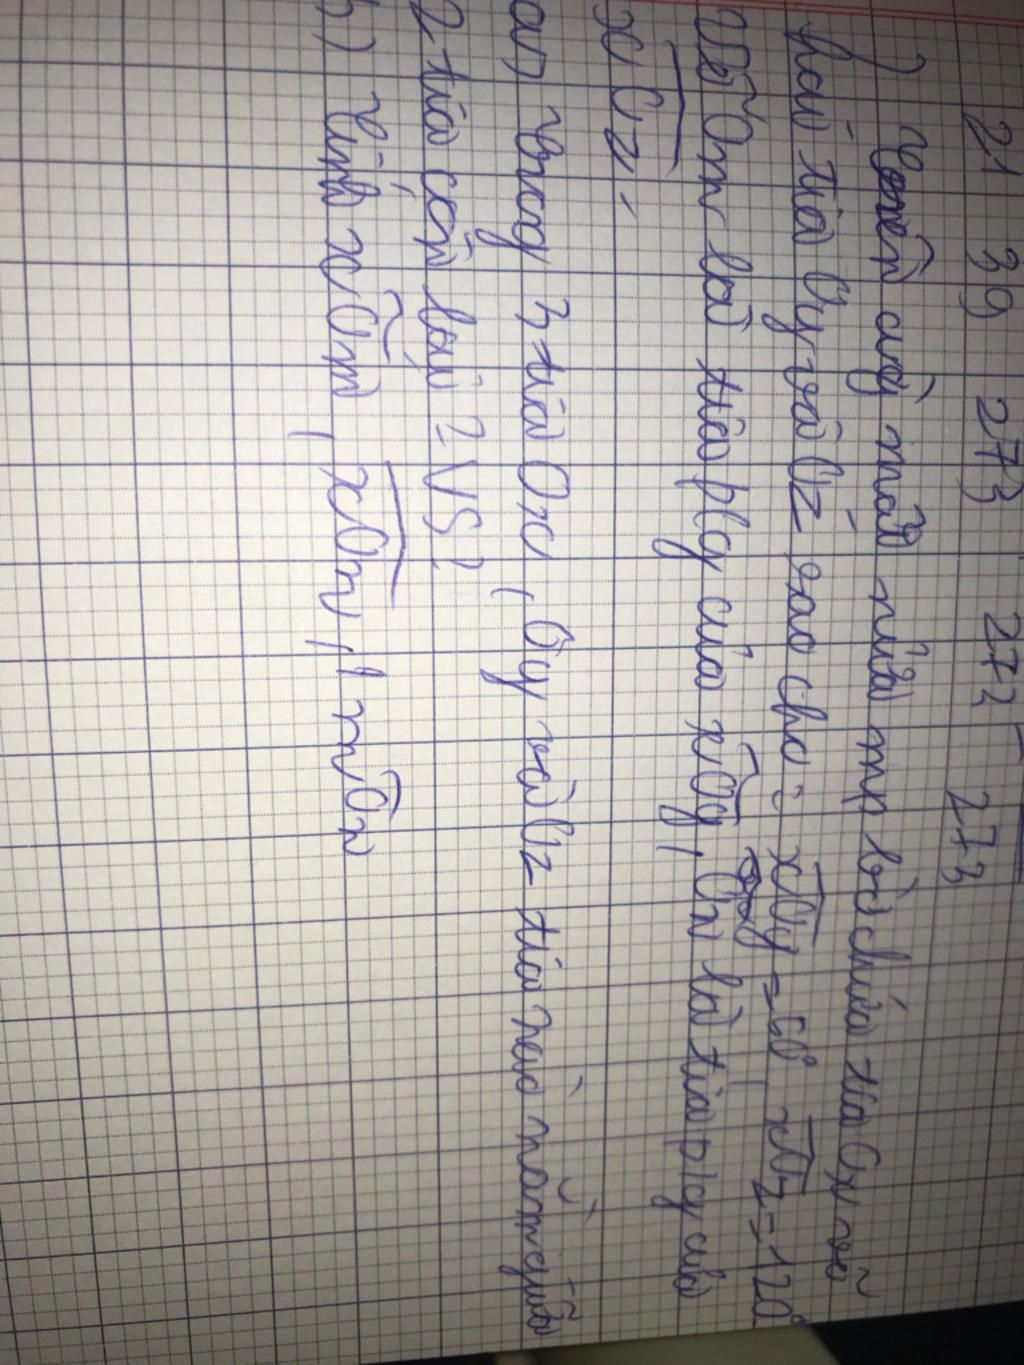 21 39 273 272 273
) Trên cùng một nửa mp bờ chứa tia Ox vẽ
hai tia Oy và Oz sao cho: xOy = 60° xOz = 120°
Vẽ Om là tia p/g của xOy, On là tia p/g của
xOz.
a, Trong 3 tia Ox, Oy và Oz tia nào nằm giữa
2 tia còn lại? VS?
b) Tính xOm, xOn, mOn